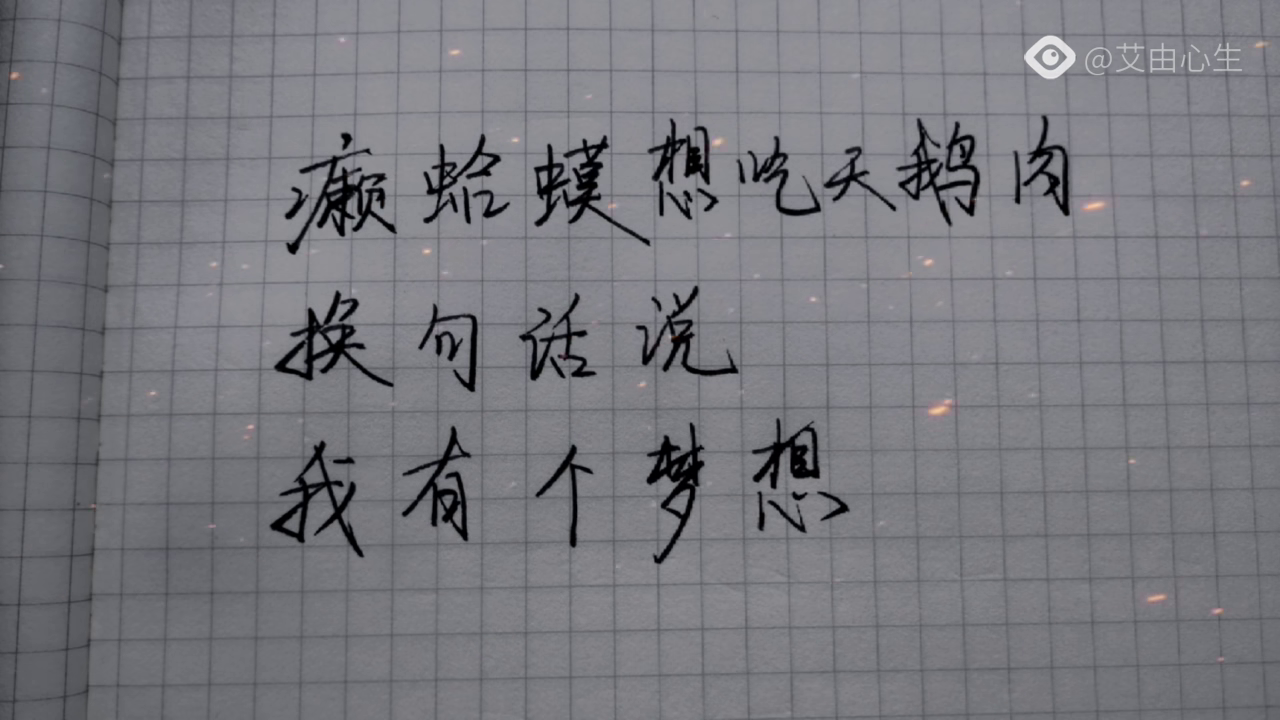 @艾由心生
癞蛤蟆想吃天鹅肉
换句话说
我有个梦想